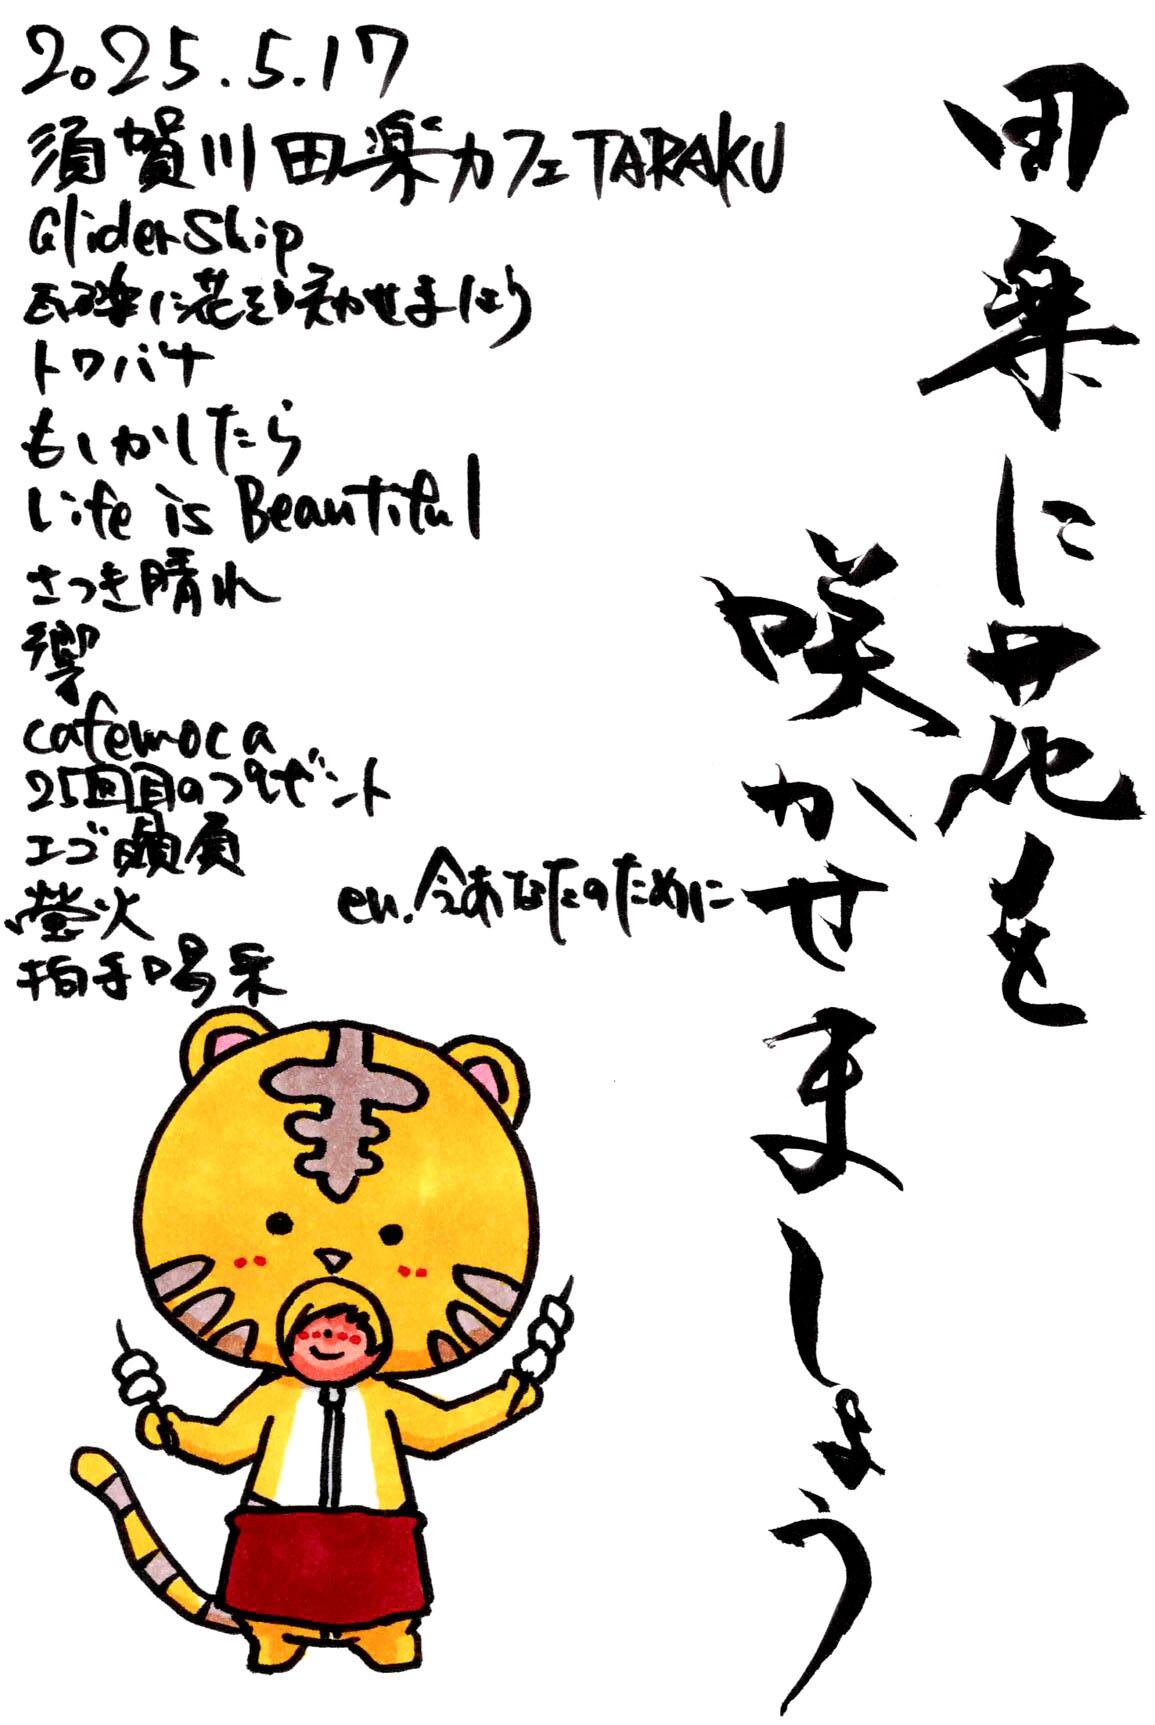 2025.5.17
須賀川田楽カフェTARAKU
GliderShip
瓦礫に花を咲かせましょう
トワバナ
もしかしたら
Life is Beautiful
さつき晴れ
響
cafemoca
25回目のプレゼント
エゴ贔屓
螢火
拍手喝采
en.今あなたのために
田楽に花を
咲かせましょう